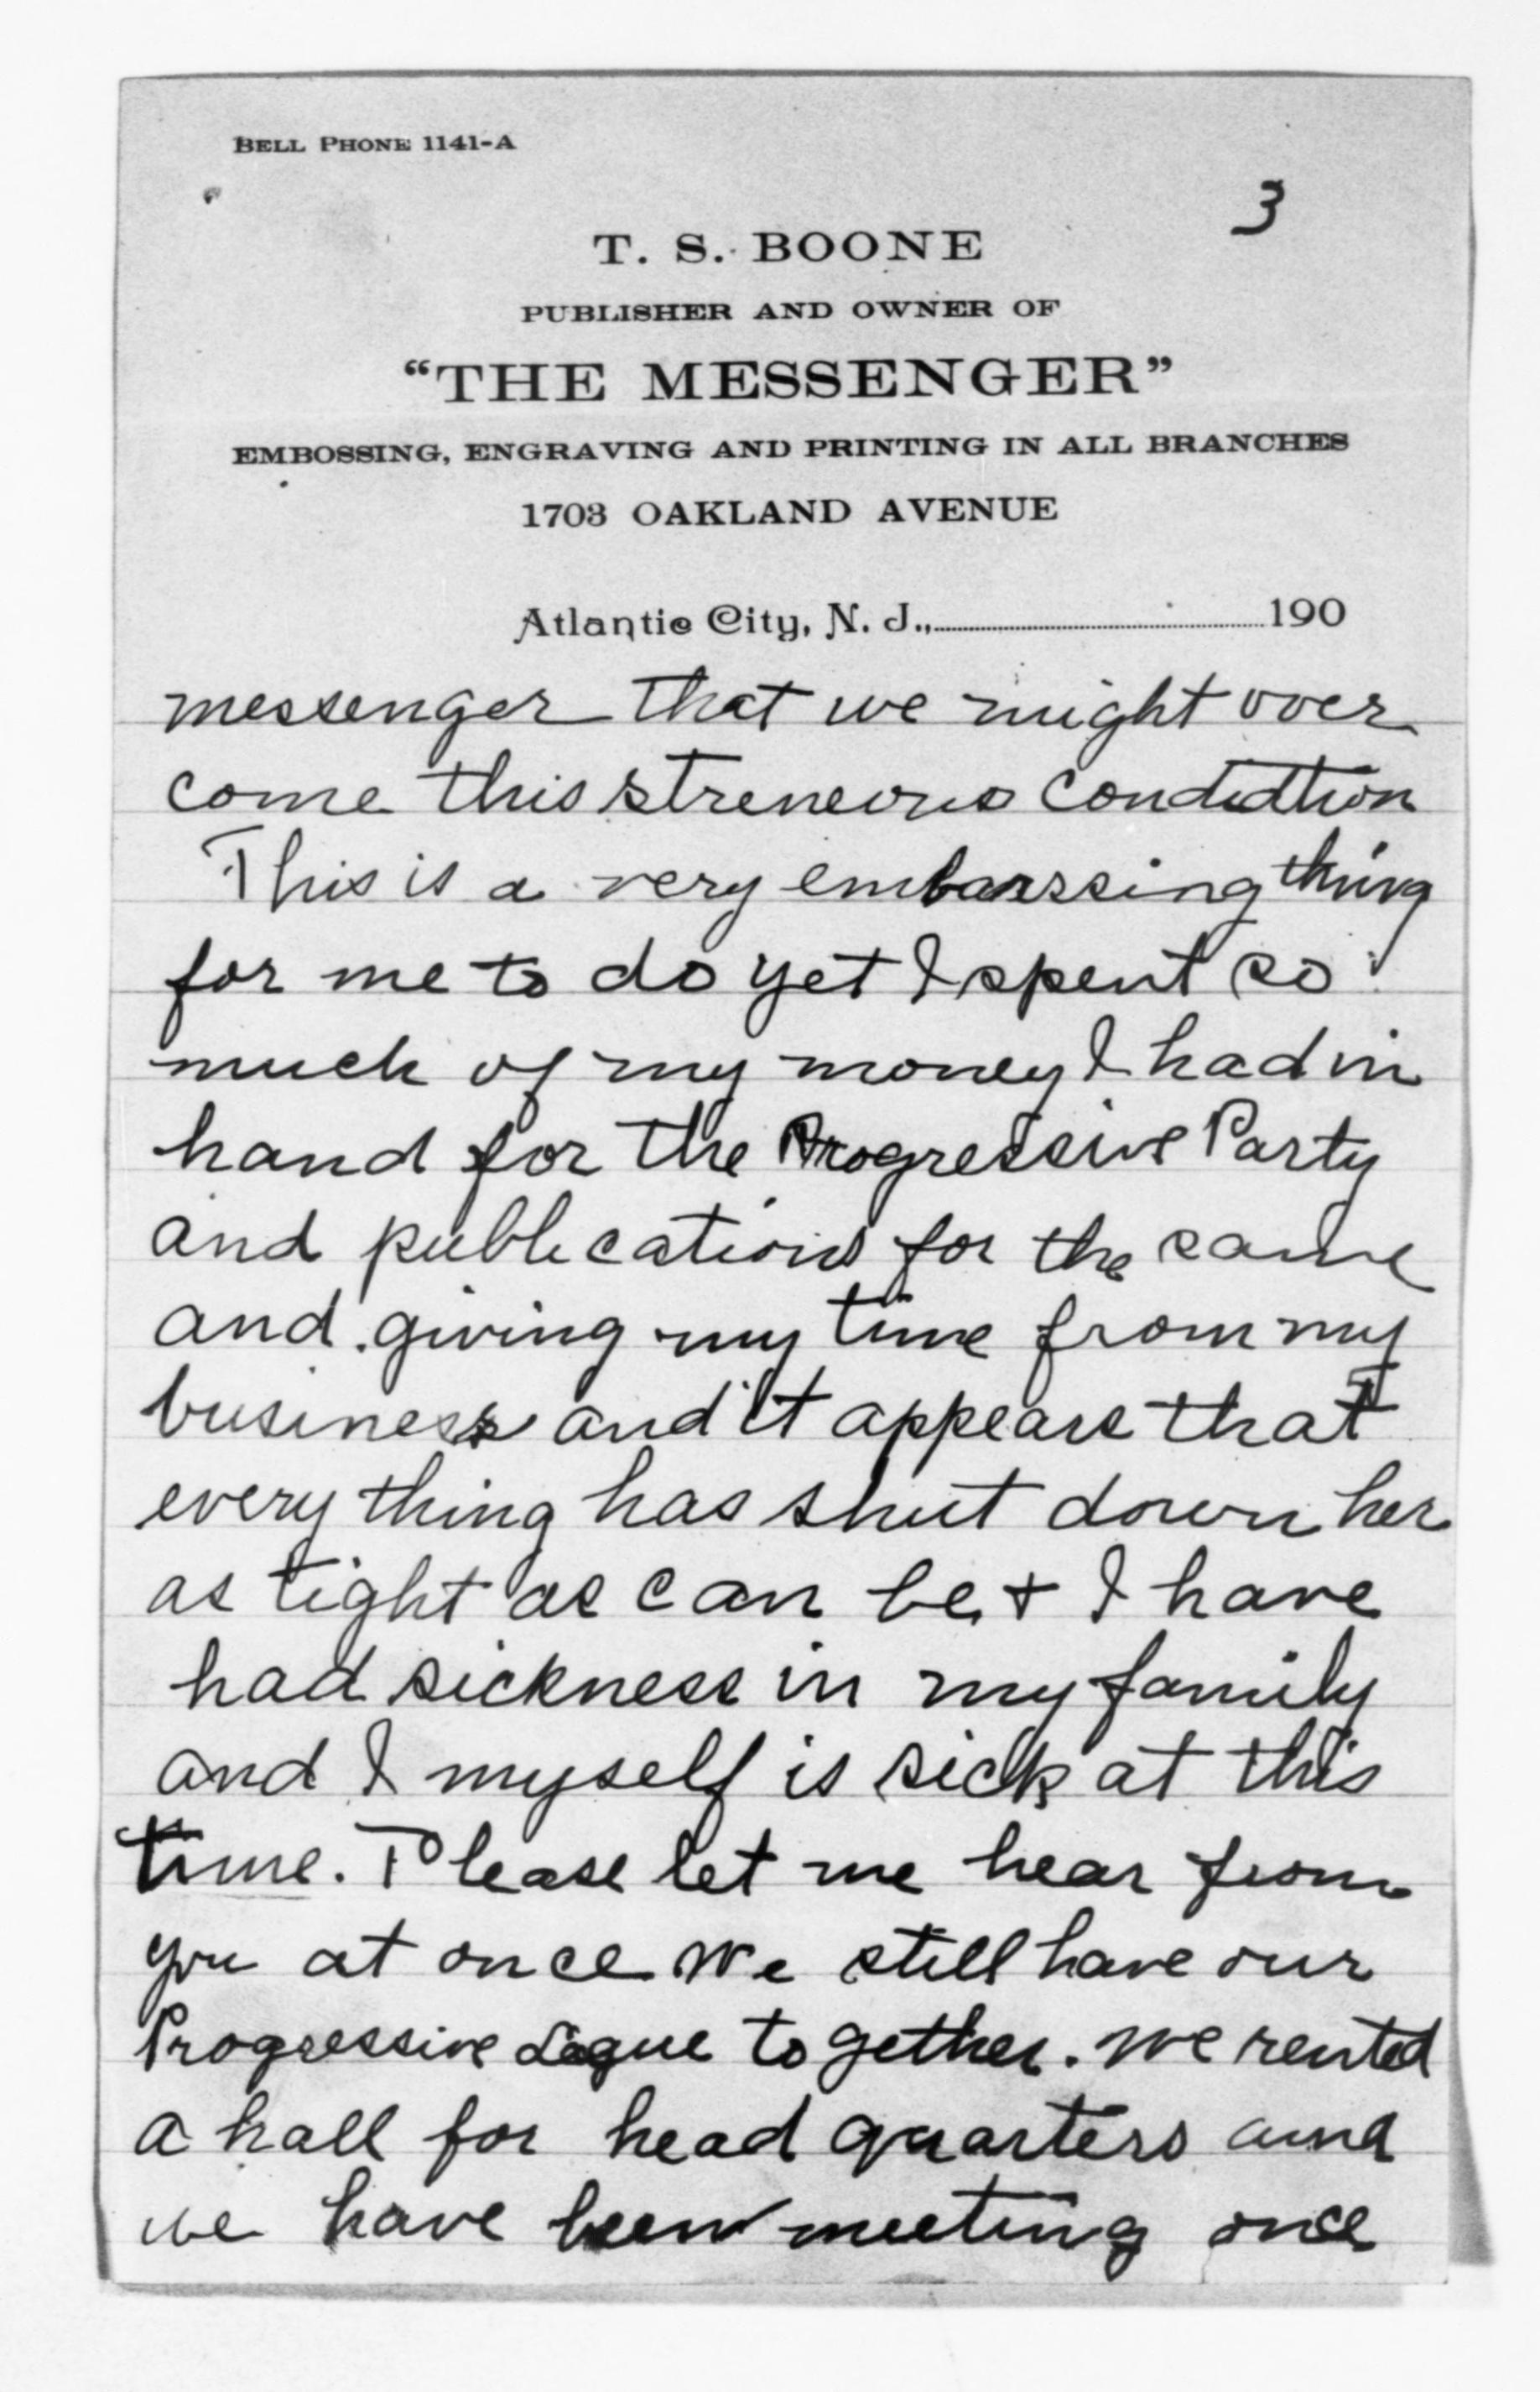 BELL PHONE 1141-A
3
T. S. BOONE
PUBLISHER AND OWNER OF
"THE MESSENGER"
EMBOSSING, ENGRAVING AND PRINTING IN ALL BRANCHES
1703 OAKLAND AVENUE
Atlantic City, N. J.,..............................190
messenger that we might over
come this streneous condidtion
This is a very embarssing thing
for me to do yet I spent so
much of my money I had in
hand for the Progressive Party
and publications for the same
and giving my time from my
business and it appears that
every thing has shut down her
as tight as can be, + I have
had sickness in my family
and I myself is sick at this
time. Please let me hear from
you at once We still have our
Progressive Legue to gether. We rented
a hall for head quarters and
we have been meeting once